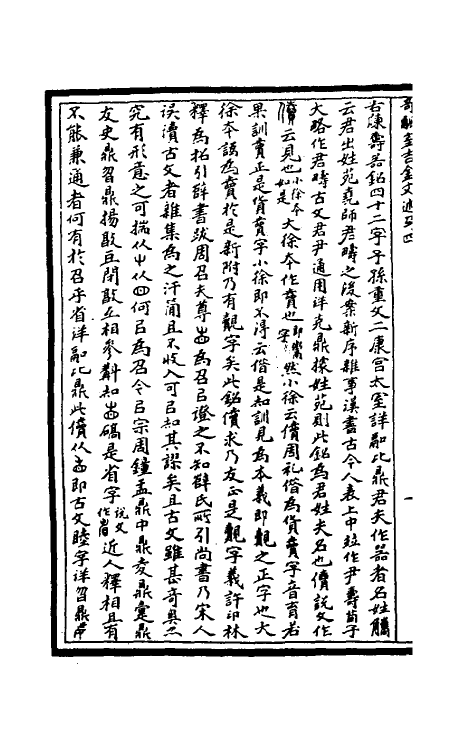 奇觚室吉金文述卷四
一
右陳壽君銘四十二字子孫重文二康宮太室詳鬲比鼎君夫作器者名姓觿
云君出姓苑堯師君疇之後案新序雜事漢書古今人表上中竝作尹壽荀子
大略作君疇古文君尹通用詳克鼎據姓苑則此銘為君姓夫名也儥說文作
儥云見也小徐本如是大徐本作賣也即鬻字然小徐云儥周礼借為貨賣字音育若
果訓賣正是貨賣字小徐即不得云借是知訓見為本義即覿之正字也大
徐本誤為賣於是新附乃有覿字矣此銘儥求乃友正是覿字義許印林
釋為拓引辥書跋周召夫尊為召㠯證之不知辥氏所引尚書乃宋人
误讀古文者雜集為之汗簡且不收入可㠯知其謬矣且古文雖甚奇奥亦
究有形意之可揣从屮从四何㠯為召令㠯宗周鐘盂鼎中鼎㚆鼎㝨鼎
友史鼎曶鼎揚𣪘豆閉𣪘互相參斠知碻是省字說文作㫳近人釋相且有
不能兼通者何有於召乎省詳鬲比鼎此儥从即古文睦字詳曶鼎帶